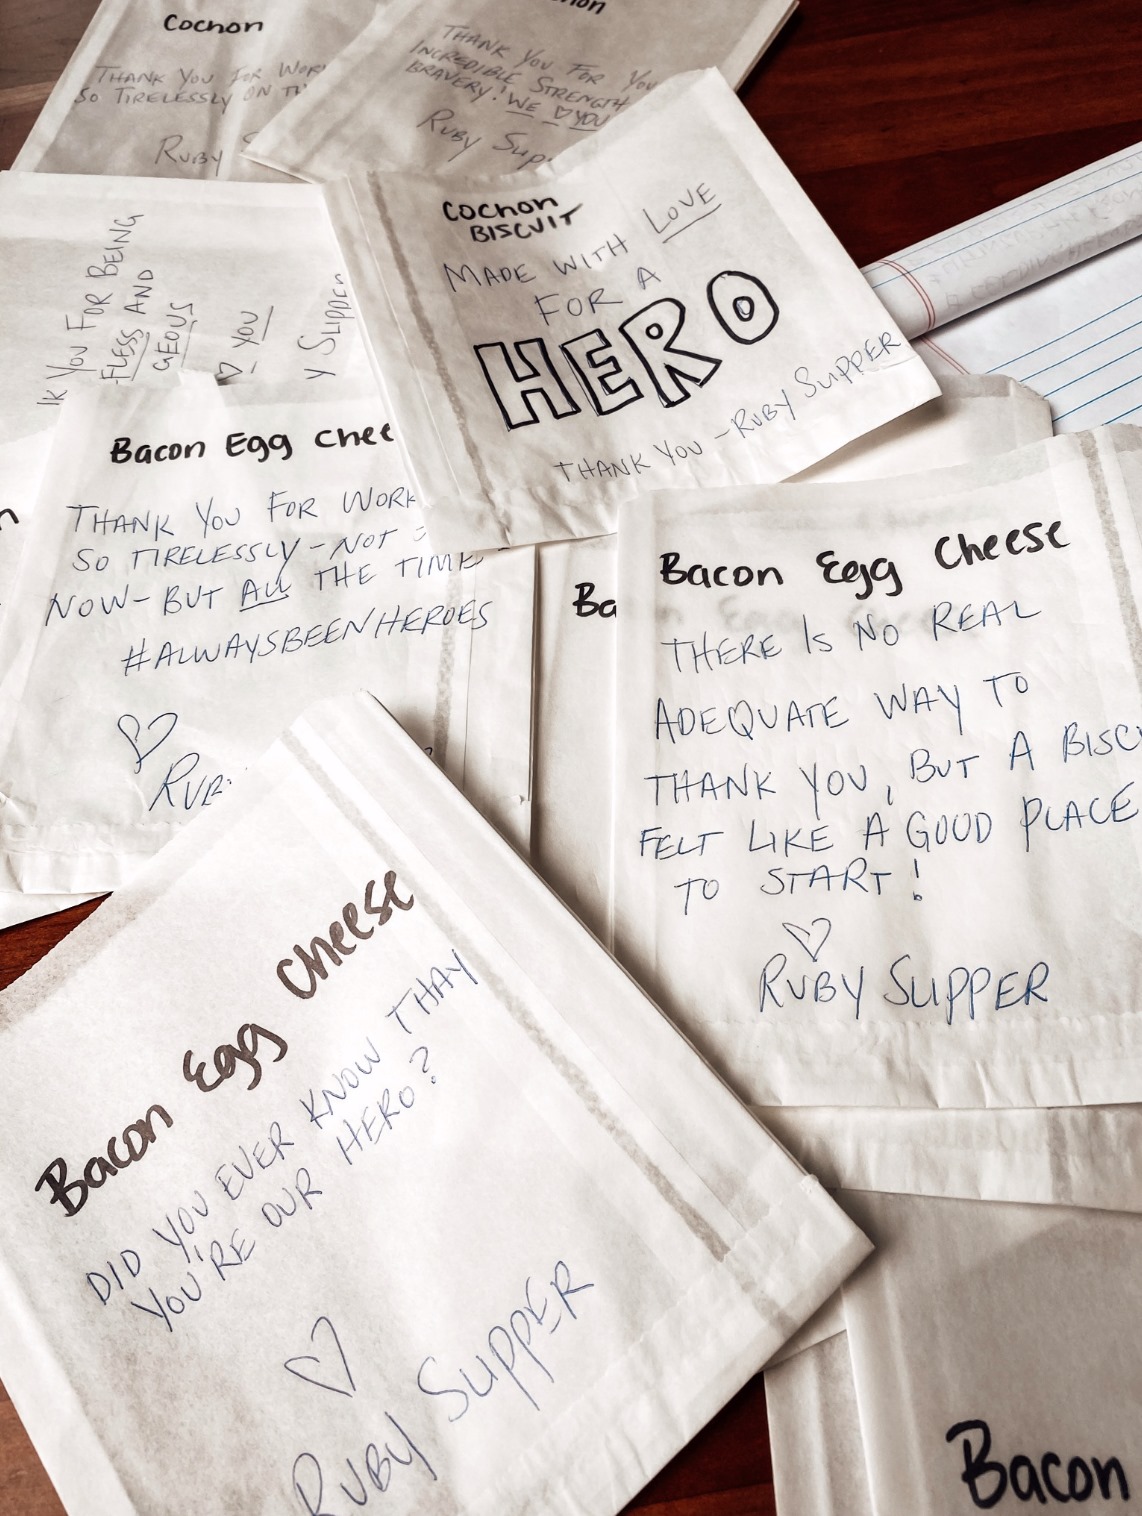 Cochon
THANK YOU FOR WORK
SO TIRELESSLY ON TH
RUBY S
THANK YOU FOR YOU
INCREDIBLE STRENGTH
BRAVERY! WE ♡ YOU
RUBY SUPP
K YOU FOR BEING
FLESS AND
GEOUS
♡ YOU
Y SLIPPER
Cochon
BISCUIT
MADE WITH LOVE
FOR A
HERO
THANK YOU - RUBY SLIPPER
Bacon Egg Chee
THANK YOU FOR WORK
SO TIRELESSLY - NOT
NOW - BUT ALL THE TIME
#ALWAYSBEENHEROES
♡
RUB
Ba
Bacon Egg Cheese
THERE IS NO REAL
ADEQUATE WAY TO
THANK YOU, BUT A BISC
FELT LIKE A GOOD PLACE
TO START!
♡
RUBY SLIPPER
Bacon Egg Cheese
DID YOU EVER KNOW THAY
YOU'RE OUR HERO?
♡
RUBY SLIPPER
Bacon